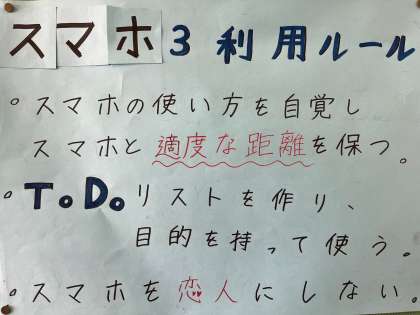 スマホ3利用ルール
。スマホの使い方を自覚し
スマホと適度な距離を保つ。
。ToDoリストを作り、
目的を持って使う。
。スマホを恋人にしない。